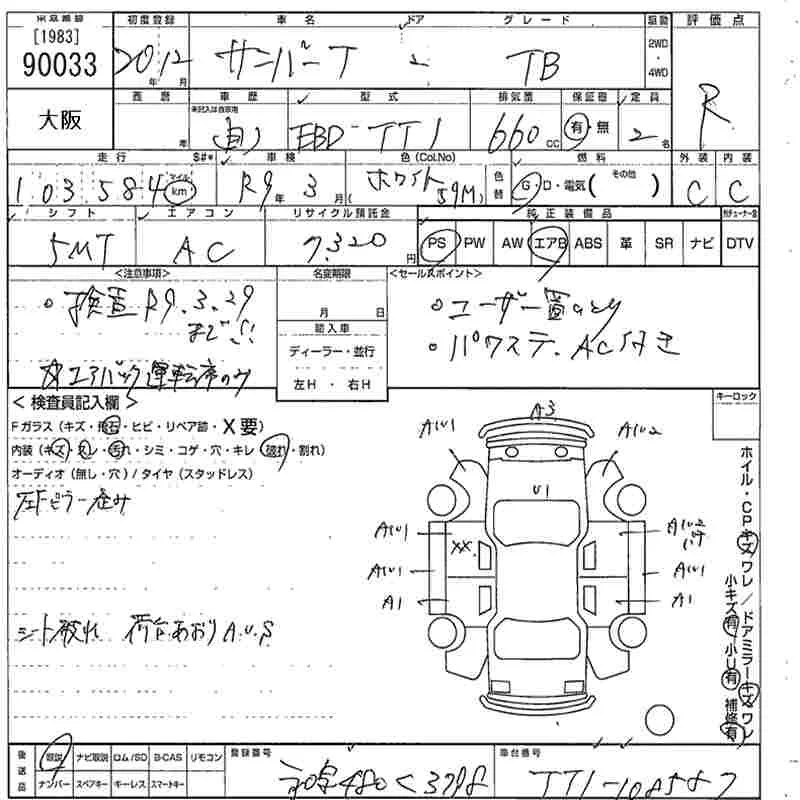 初度登録 車名 ドア グレード 駆動 評価点
[1983]
90033
20 12 サンバーT 2 TB 2WD・4WD R
年 月
大阪
車歴 型式 排気量 保証書 定員
自 EBD-TT1 660 CC 有・無 2 名
走行 S#* 車検 色(Col.No) 色替 燃料 外装 内装
103584 マイル km R9年3月 ホワイト (59M) G・D・電気( その他 ) C C
シフト エアコン リサイクル預託金 純正装備品
5MT AC 7,320円 PS PW AW エアB ABS 革 SR ナビ DTV
<注意事項> 名変期限 <セールスポイント>
検査R9.3.29
まで!!
月 日
ディーラー・並行
左H・右H
ユーザー買
パワステ、AC付き
エアバック運転席のみ
<検査員記入欄> キーロック
Fガラス(キズ・飛石・ヒビ・リペア跡・X要)
内装(キズ・スレ・汚れ・シミ・コゲ・穴・キレ・破れ・割れ)
オーディオ(無し・穴)/タイヤ(スタッドレス)
左Fピラー歪み
シート破れ 荷台あおりA.U.S
A3
AU1 AU2
U1
AU1 XX AU2
AU1 AU1
A1 A1
ホイル・CPキズワレ/ドアミラーキズワレ
小キズ有 小U有 補修有
後送品 取説 ナビ取説 ロム/SD B-CAS リモコン 登録番号 車台番号
ナンバー スペアキー キーレス スマートキー 480 く 3798 TT1-108587